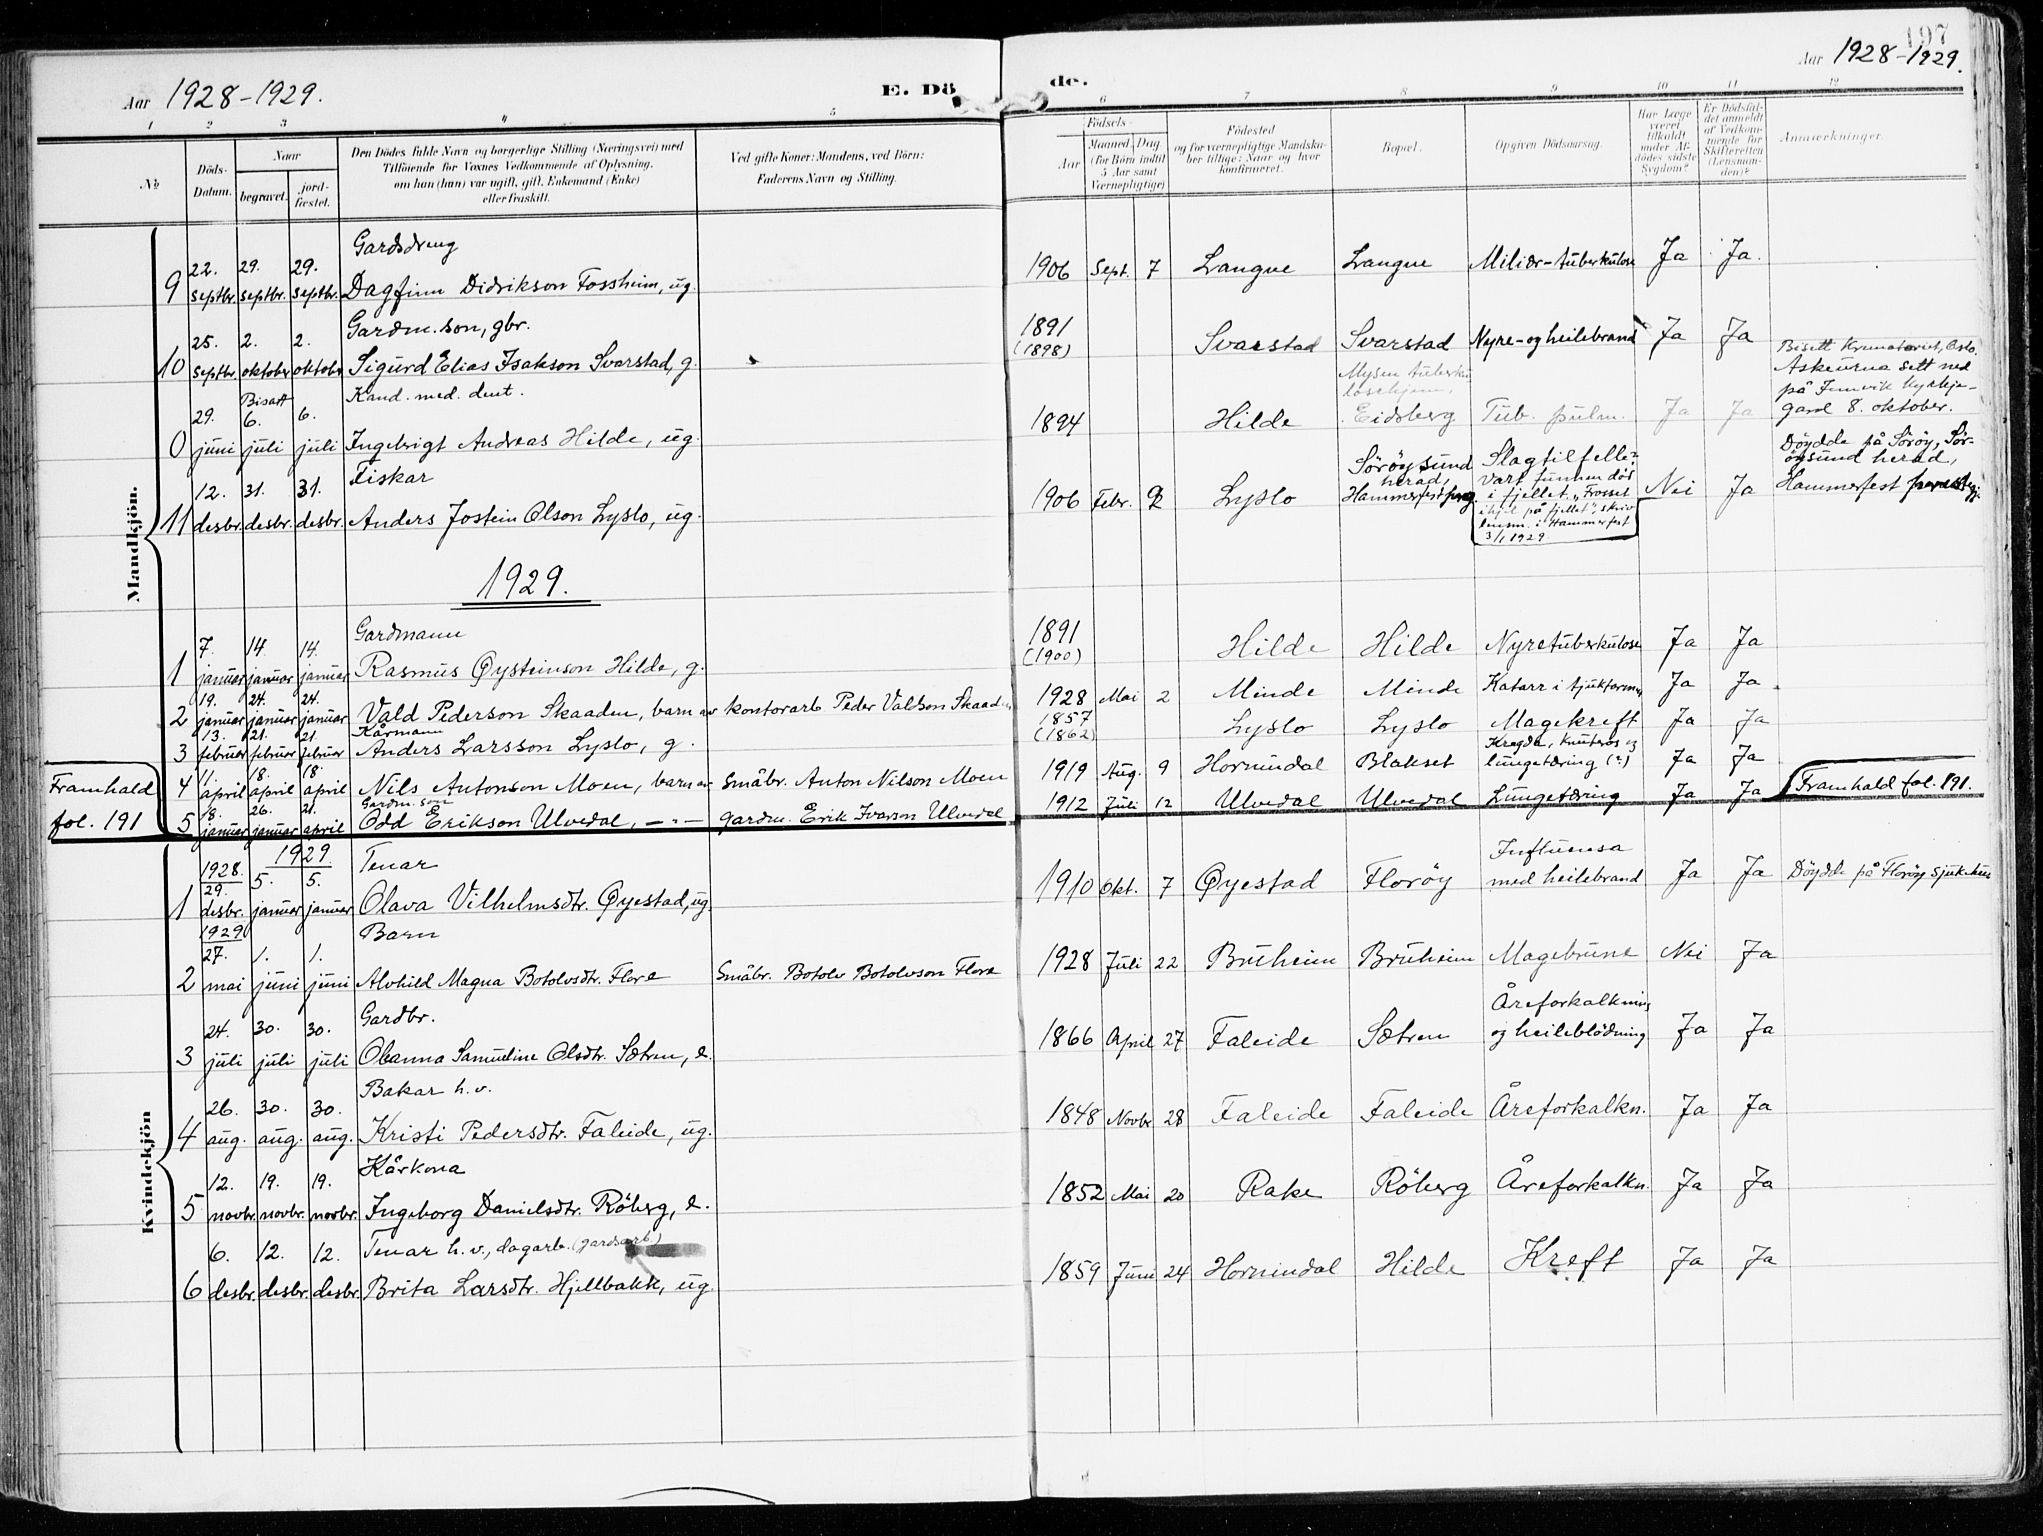 Aar 1928-1929.
E. Dö
de.
197
Aar 1928-1929.
1 2 3 4 5 6 7 8 9 10 11 12
No
Döds-Datum.
Naar
begravet.
jord-fæstet.
Den Dödes fulde Navn og borgerlige Stilling (Næringsvei) med
Tilföiende for Voxnes Vedkommende af Oplysning,
om han (hun) var ugift, gift, Enkemand (Enke)
eller fraskilt.
Ved gifte Koner: Mandens, ved Börn:
Faderens Navn og Stilling.
Födsels-
Aar
Maaned (for Börn indtil 5 Aar samt Værnepligtige)
Dag
Födested
og for værnepligtige Mandska-
ber tillige: Naar og hvor
konfirmeret.
Bopæl.
Opgiven Dödsaarsag.
Har Læge været tilkaldt under Afdödes sidste Sygdom?
Er Dödsfaldet anmeldt af Vedkommende for Skifteretten (Lensmanden)?
Anmærkninger.
Mandkjön.
Gardsdreng
9 22. septbr. 29. septbr. 29. septbr. Dagfinn Didrikson Fossheim, ug. 1906 Sept. 7 Langve Langve Miliær-tuberkulose Ja Ja.
Gardm. son, gbr.
10 25. septbr. 2. oktober 2. oktobr. Sigurd Elias Isakson Svarstad, g. 1891 (1898) Svarstad Svarstad Nyre- og heilebrand Ja Ja
Kand. med. dent.
0 29. juni Bisatt 6. juli 6. juli Ingebrigt Andreas Hilde, ug. 1894 Hilde Mysen tuberkulosehjem, Eidsberg Tub. pulm. Ja Ja Bisett Krematoriet, Oslo. Askeurna sett ned på Innvik kyrkjegard 8. oktober.
Fiskar
11 12. desbr. 31. desbr. 31. desbr. Anders Jostein Olson Lyslo, ug. 1906 Febr. 9 Lyslo Söröysund herad, Hammerfest Slagtilfelle= Vart funnen död i fjellet. "Frosset ihjel på fjellet", skriv lensm. i Hammerfest 3/1 1929. Nei Ja Döydde på Söröy, Söröysund herad, Hammerfest
1929.
Gardmann
1 7. januar 14. januar 14. januar Rasmus Øysteinson Hilde, g. 1891 (1900) Hilde Hilde Nyretuberkulose Ja Ja
2 19. januar 24. januar 24. januar Vald Pederson Skaaden, barn av kontorarb Peder Valdson Skaaden 1928 Mai 2 Minde Minde Katarr i tjuktarmen Ja Ja
Kårmann
3 13. februar 21. februar 21. februar Anders Larsson Lyslo, g. 1857 (1862) Lyslo Lyslo Magekreft Ja Ja
4 11. april 18. april 18. april Nils Antonson Moen, barn av Småbr. Anton Nilson Moen 1919 Aug. 9 Hornindal Blakset Kregda, knuteros og lungetæring (?) Ja Ja
Gardm. son
5 18. januar 26. januar 21. april Odd Erikson Ulvedal, -"- gardm. Erik Ivarson Ulvedal 1912 Juli 12 Ulvedal Ulvedal Lungetæring Ja Ja
Framhald fol. 191
Framhald fol. 191.
Kvindekjön
1928. 1929. Tenar
1 29. desbr. 5. januar 5. januar Olava Vilhelmsdtr. Øyestad, ug. 1910 Okt. 7 Øyestad Floröy Influensa med heilebrand Ja Ja Döydde på Floröy sjukehus
1929 Barn
2 27. mai 1. juni 1. juni Alvhild Magna Botolvsdtr. Flore Småbr. Botolv Botolvson Flore 1928 Juli 22 Bruheim Bruheim Magebrune Nei Ja
Gardbr.
3 24. juli 30. juli 30. juli Olanna Samueline Olsdtr. Sætren, e. 1866 April 27 Faleide Sætren Åreforkalkning og heileblödning Ja Ja
Bakar h. v.
4 26. aug. 30. aug. 30. aug. Kristi Pedersdtr. Faleide, ug. 1848 Novbr 28 Faleide Faleide Åreforkalkn. Ja Ja
Kårkona
5 12. novbr. 19. novbr. 19. novbr. Ingeborg Danielsdtr. Röberg, e. 1852 Mai 20 Rake Röberg Åreforkalkn. Ja Ja
Tenar h. v., dagarb. (gardsarb)
6 6. desbr. 12. desbr. 12. desbr. Brita Larsdtr. Hjellbakk, ug. 1859 Juni 24 Hornindal Hilde Kreft Ja Ja